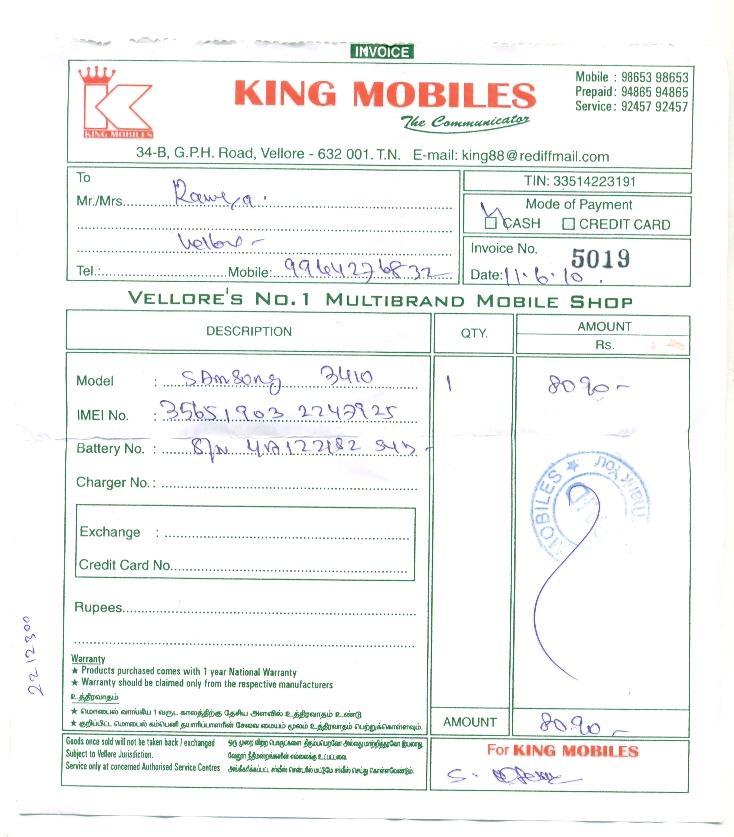 INVOICE
KING MOBILES
KING MOBILES
The Communicator
Mobile : 98653 98653
Prepaid : 94865 94865
Service : 92457 92457
34-B, G.P.H. Road, Vellore - 632 001. T.N. E-mail: king88@rediffmail.com
To
Mr./Mrs.
Vellore -
Tel.: Mobile: 9964276832
TIN: 33514223191
Mode of Payment
CASH CREDIT CARD
Invoice No. 5019
Date: 11.6.10.
VELLORE'S NO.1 MULTIBRAND MOBILE SHOP
DESCRIPTION QTY. AMOUNT
Rs.
Model : SAMSONG 3410 1 8090-
IMEI No. : 35651903 2247925
Battery No. : S/N
Charger No. :
Exchange :
Credit Card No.
Rupees
2212300
Warranty
★ Products purchased comes with 1 year National Warranty
★ Warranty should be claimed only from the respective manufacturers
உத்திரவாதம்
★ மொபைல் வாங்கிய 1 வருட காலத்திற்கு தேசிய அளவில் உத்திரவாதம் உண்டு
★ குறிப்பிட்ட மொபைல் கம்பெனி தயாரிப்பாளரின் சேவை மையம் மூலம் உத்திரவாதம் பெற்றுக்கொள்ளவும்.
MOBILES ★ Thank You
AMOUNT 8090-
Goods once sold will not be taken back / exchanged
Subject to Vellore Jurisdiction.
Service only at concerned Authorised Service Centres
ஒரு முறை விற்ற பொருட்களை திரும்பபெறவோ அல்லது மாற்றித்தரவோ இயலாது
வேலூர் நீதிமன்றங்களின் எல்லைக்கு உட்பட்டவை
அங்கீகரிக்கப்பட்ட சர்வீஸ் சென்டரில் மட்டுமே சர்வீஸ் செய்து கொள்ளவேண்டும்.
For KING MOBILES